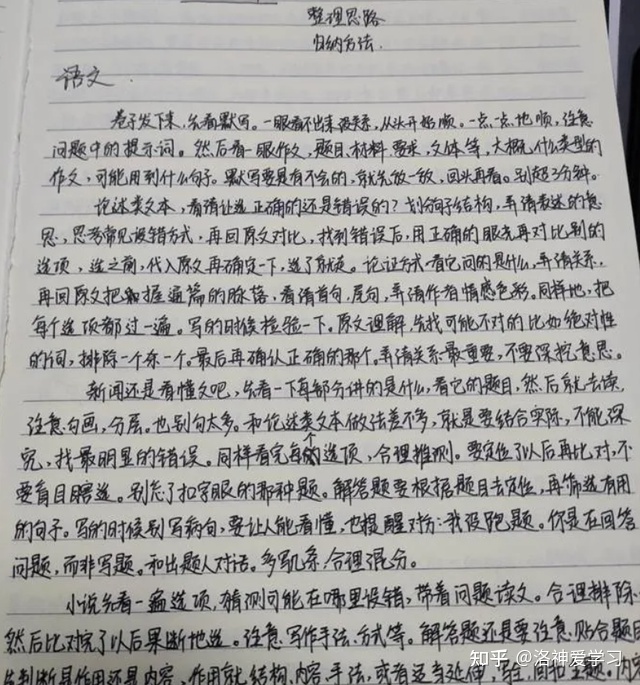 整理思路
归纳方法.
语文.
卷子发下来,先看默写。一眼看不出来没关系,从头开始顺。一点一点地顺,注意
问题中的提示词。然后看一眼作文,题目、材料、要求,文体等,大概什么类型的
作文,可能用到什么句子。默写要是有不会的,就先放一放,回头再看。别超3分钟。
论述类文本,看清让选正确的还是错误的?划分句子结构,弄清表述的意
思,思考常见设错方式,再回原文对比,找到错误后,用正确的眼光再对比别的
选项,选之前,代入原文再确定一下,选了就走。论证方式看它问的是什么,弄清关系,
再回原文把握通篇的脉落,看清首句,尾句,弄清作者情感色彩。同样地,把
每个选项都过一遍。写的时候检验一下。原文理解,先找可能不对的比如绝对性
的词,排除一个余一个。最后再确认正确的那个。弄清关系最重要,不要深挖意思。
新闻还是看懂文吧,先看一下每部分讲的是什么,看它的题目,然后就去读,
注意勾画,分层。也别勾太多。和论述类文本做法差不多,就是要结合实际,不能深
究,找最明显的错误。同样看完每个选项,合理推测。要定位了以后再比对,不
要盲目瞎选。别忘了扣字眼的那种题。解答题要根据题目去定位,再筛选有用
的句子。写的时候别写病句,要让人能看懂,也提醒对方:我没跑题。你是在回答
问题,而非写题。和出题人对话。多写几条,合理混分。
小说先看一遍选项,猜测可能在哪里设错,带着问题读文。合理排除.
然后比对完了以后果断地选。注意写作手法、方式等。解答题还是要注意贴合题目
判断是作用还是内容,作用就结构、内容、手法,或有适当延伸,
知乎 @洛神爱学习